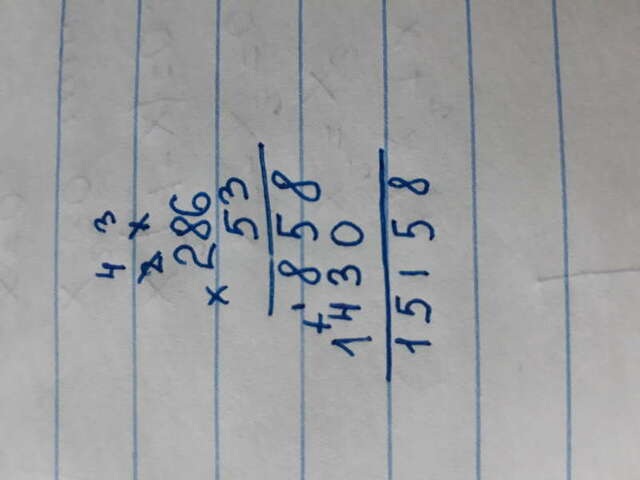 4 3
2 1
286
× 53
858
+ 1
1430
15158